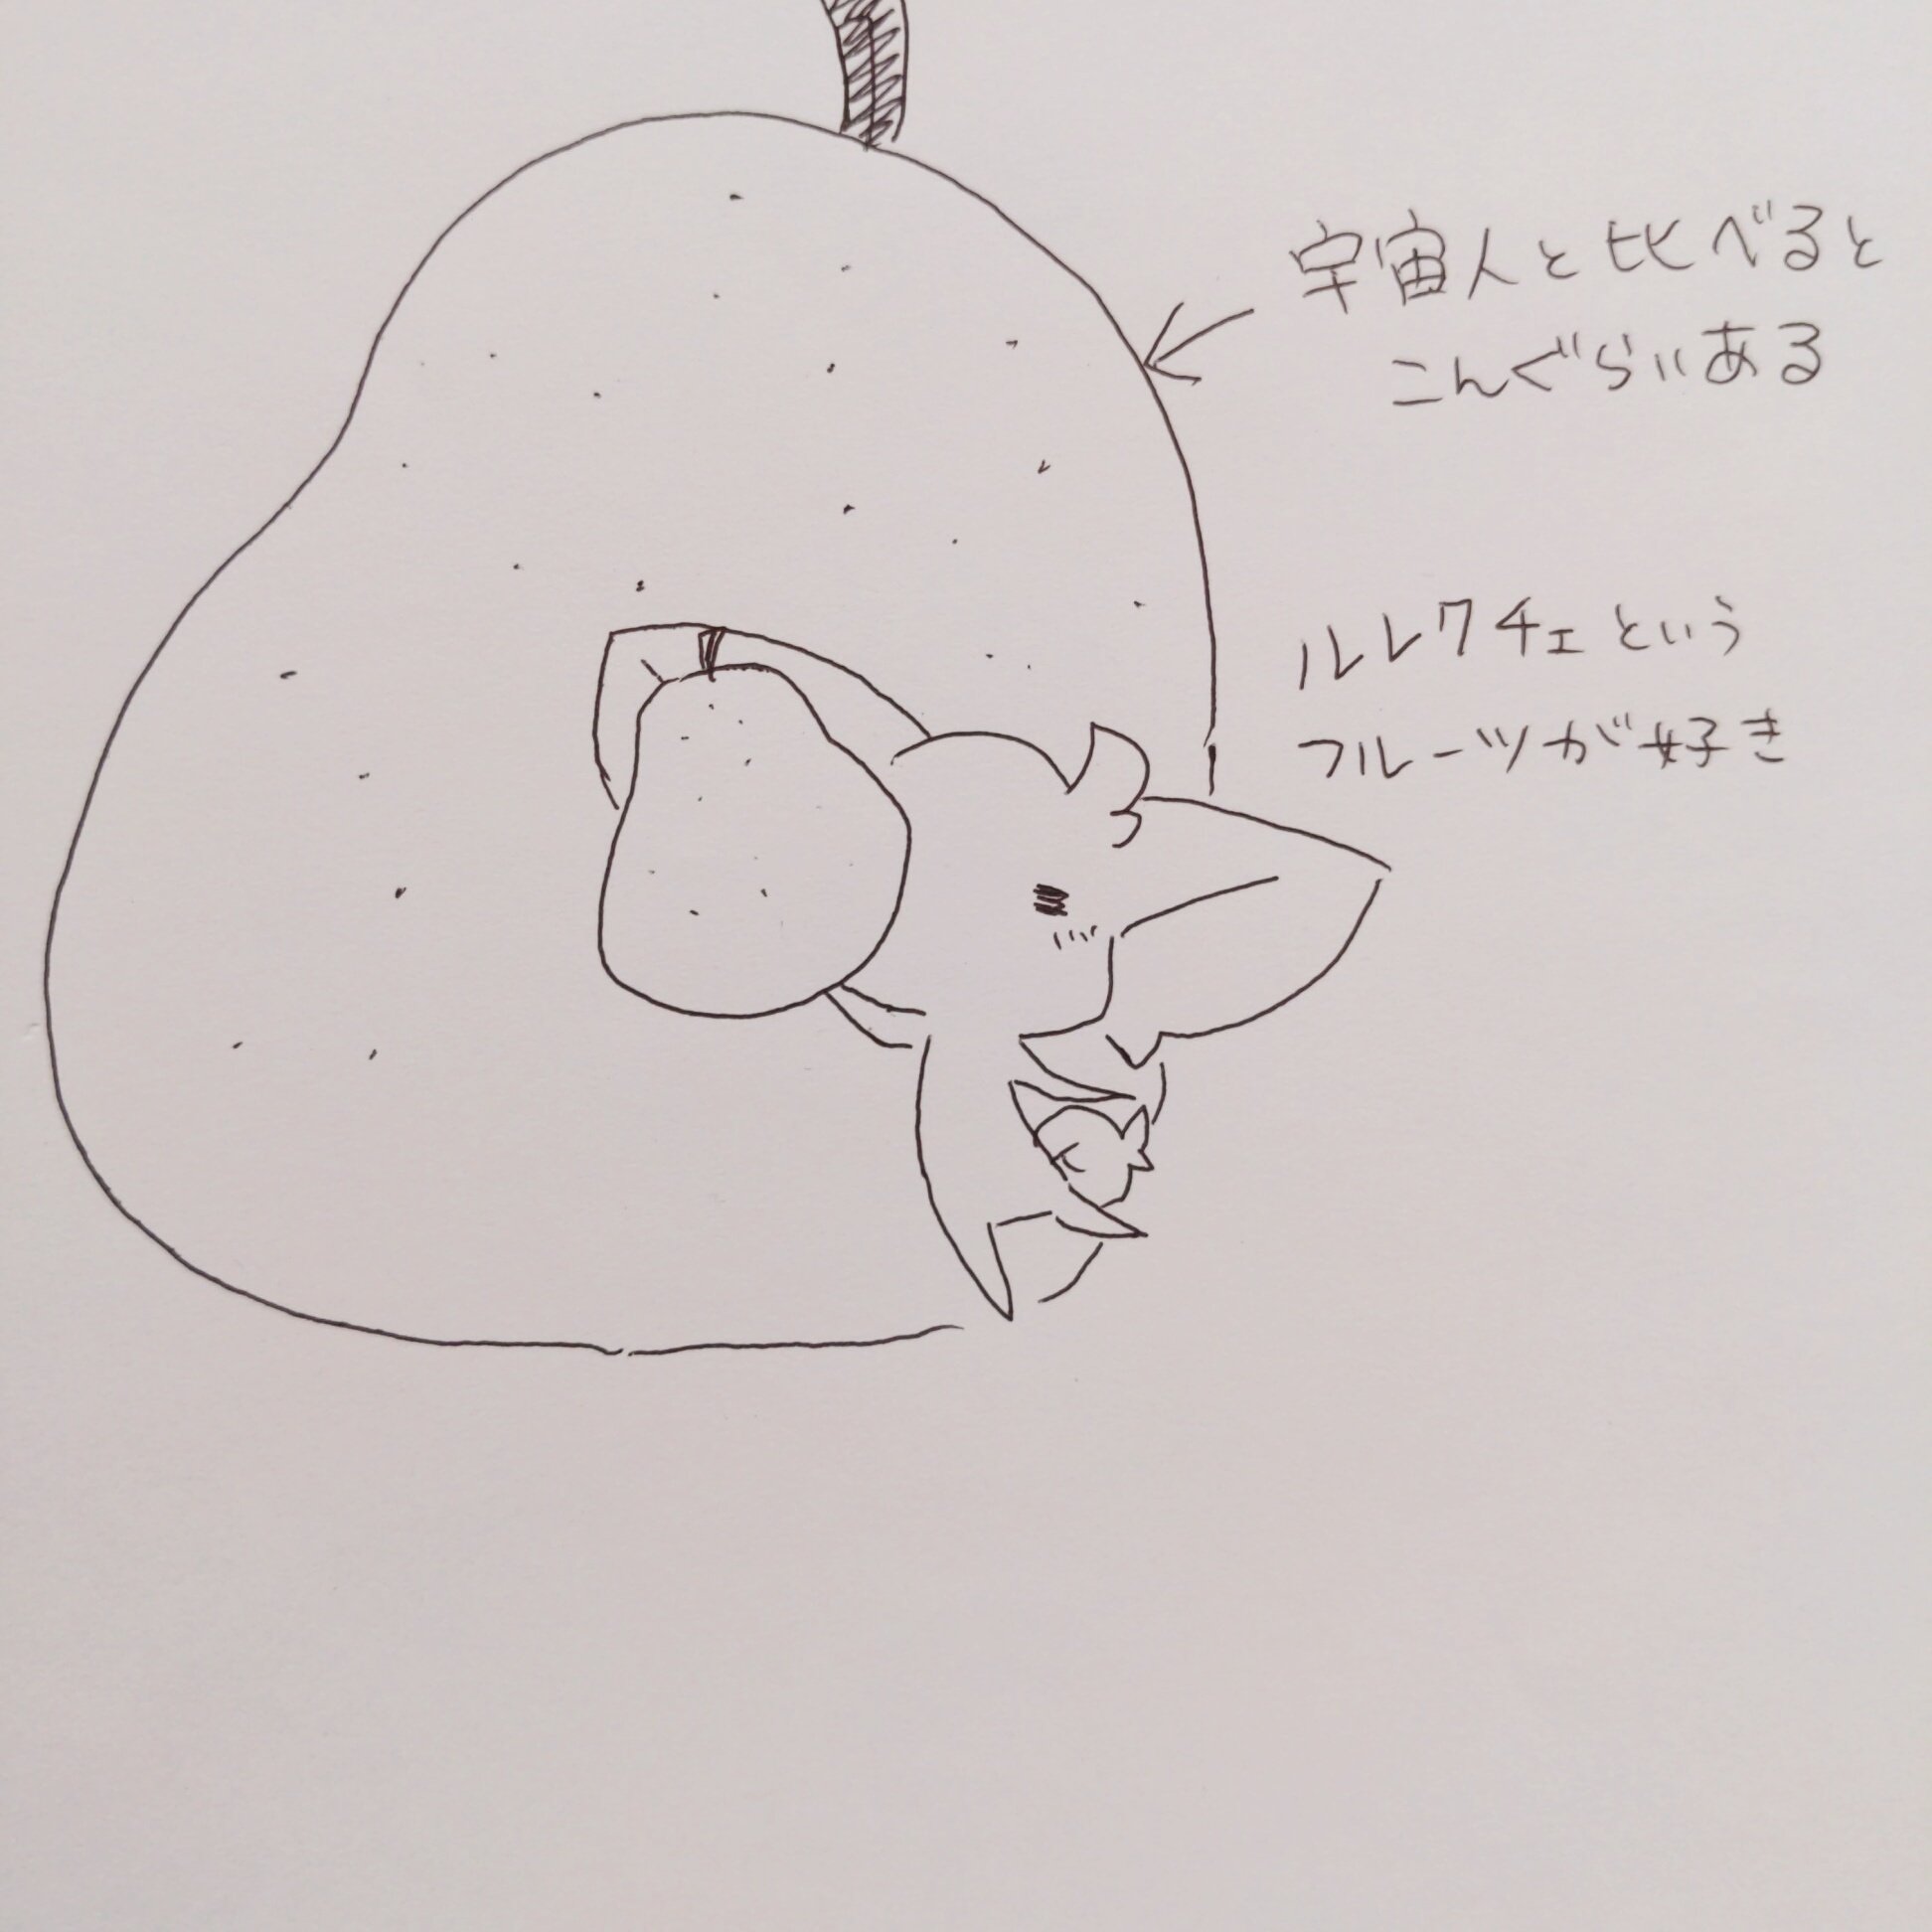 宇宙人と比べると
こんぐらいある
ルレクチェという
フルーツが好き